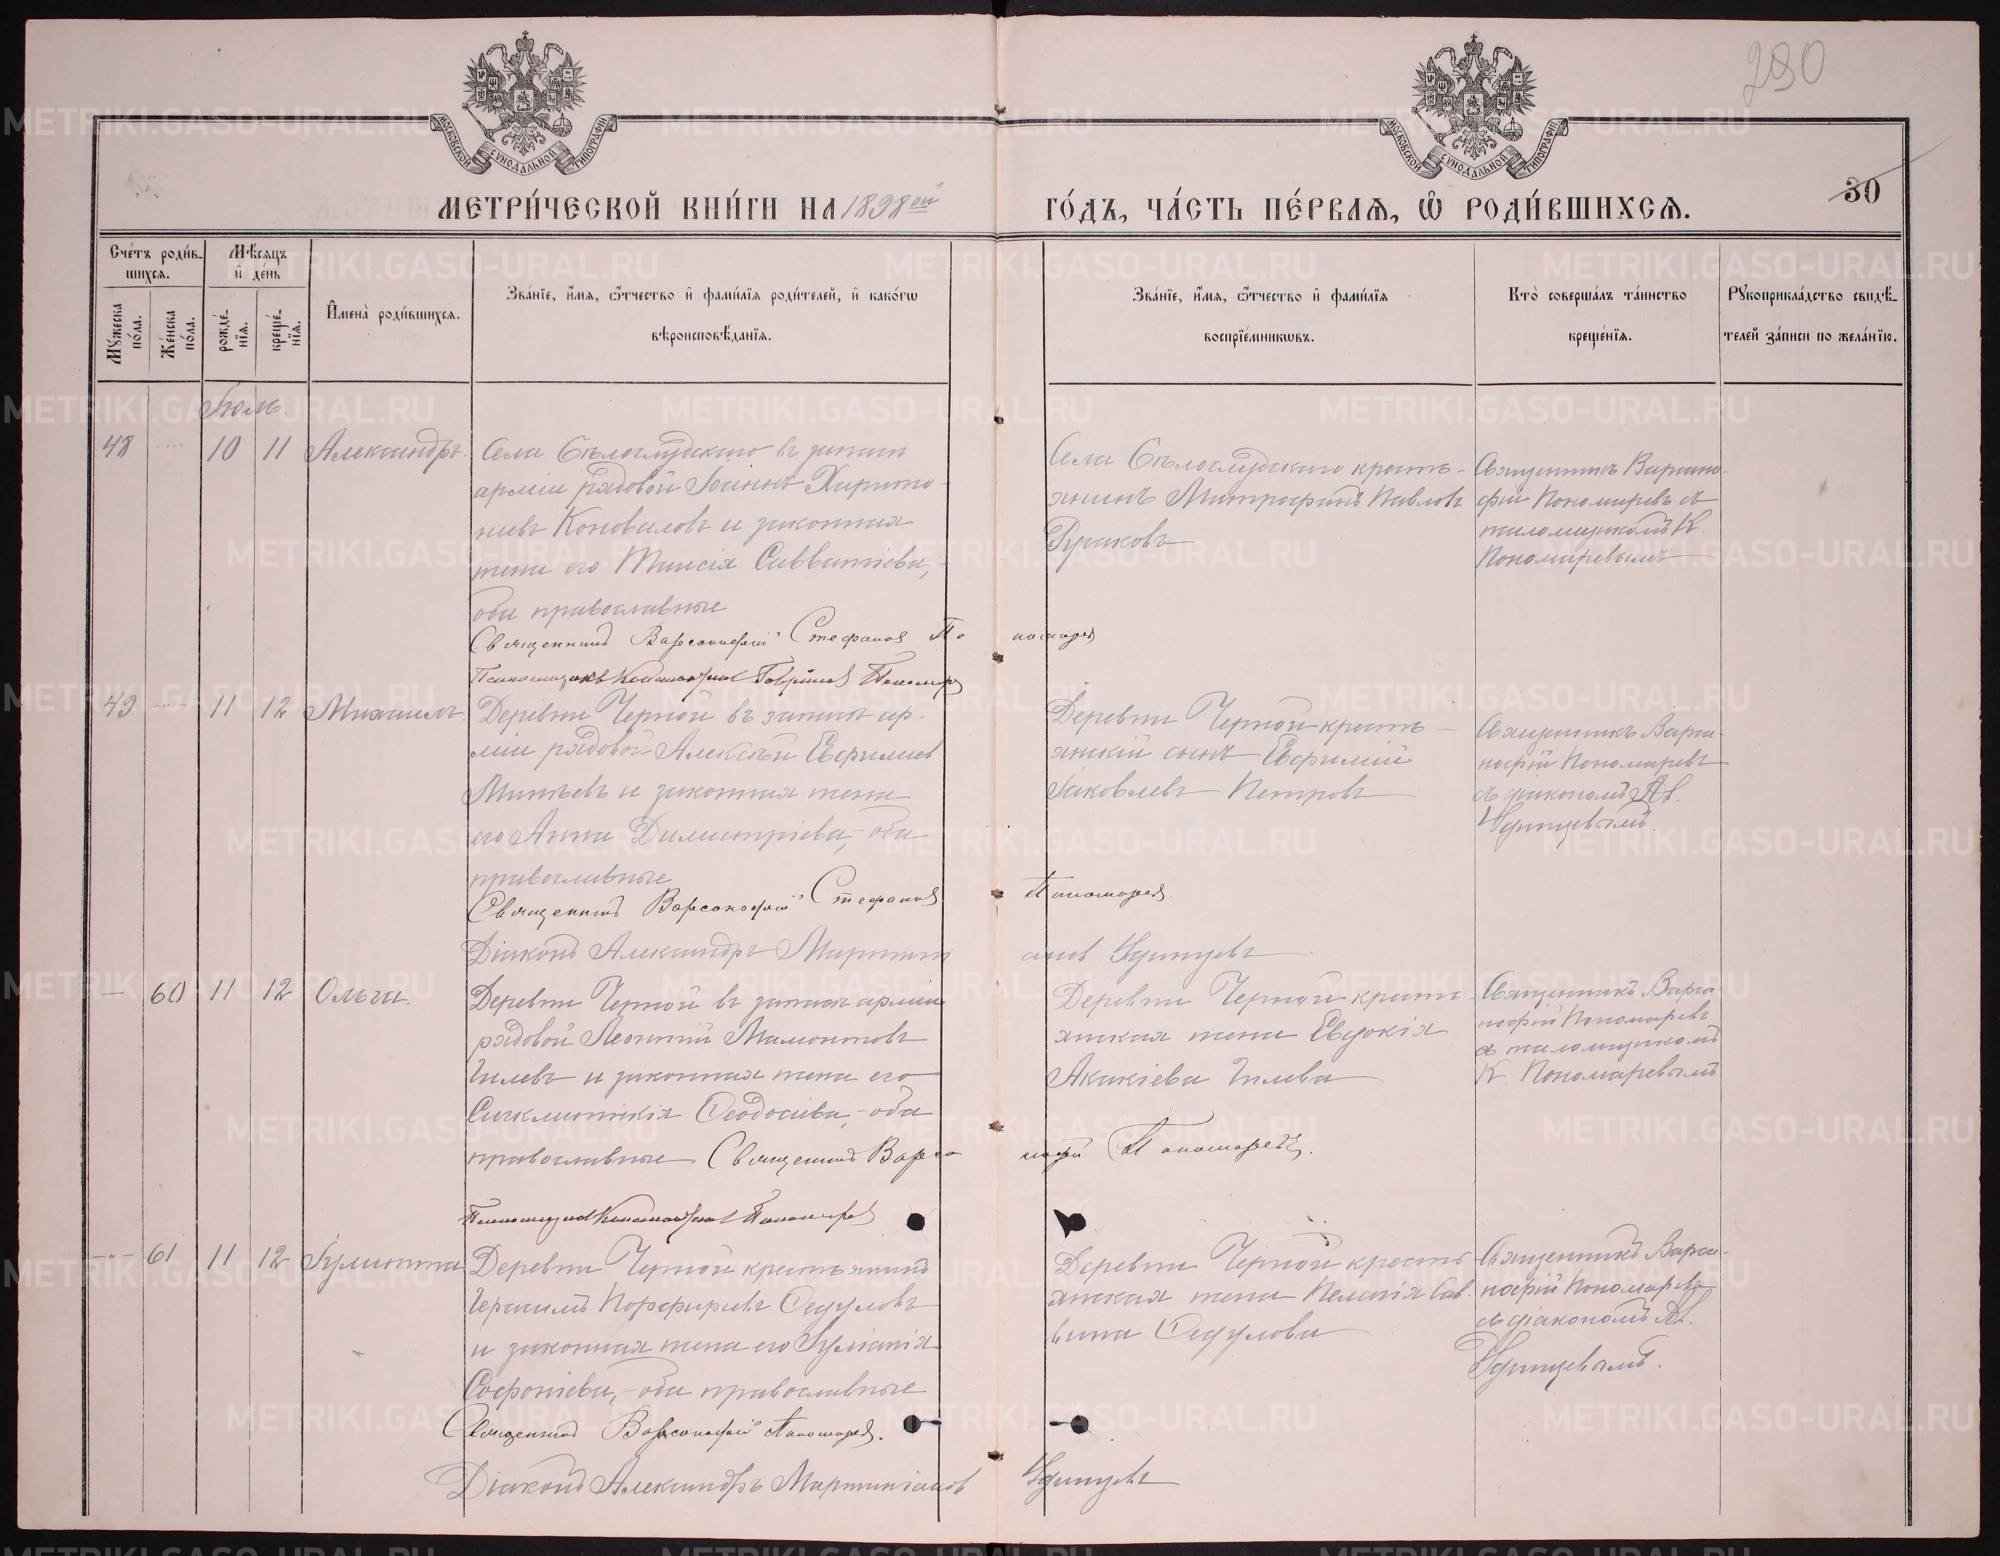 280
МОСКОВСКОЙ СѴНОДАЛЬНОЙ ТИПОГРАФІИ
МОСКОВСКОЙ СѴНОДАЛЬНОЙ ТИПОГРАФІИ
МЕТРИ́ЧЕСКОЙ КНИ́ГИ НА 1898ой ГО́ДЪ, ЧА́СТЬ ПЕ́РВАѦ, Ѡ РОДИ́ВШИХСѦ.
30
Сче́тъ роди́в-
шихсѧ.
Мꙋ́жеска по́ла.
Же́нска по́ла.
Мѣ́сѧцъ
и҆ де́нь
рожде́-нїѧ.
креще́-нїѧ.
И҆мена̀ роди́вшихсѧ.
Зва́нїе, и҆́мѧ, ѻ҆́тчество и҆ фами́лїѧ роди́телей, и҆ како́гѡ
вѣроисповѣ́данїѧ.
Зва́нїе, и҆́мѧ, ѻ҆́тчество и҆ фами́лїѧ
воспрїе́мникѡвъ.
Кто̀ соверша́лъ та́инство
креще́нїѧ.
Рꙋкоприкла́дство свидѣ́-
телей за́писи по жела́нїю.
Іюль.
48 10 11 Александръ.
Села Бѣлослудскаго въ запасѣ
арміи рядовой Іоаннъ Харито-
новъ Коноваловъ и законная
жена его Таисія Савватіева,-
оба православные
Села Бѣлослудскаго кресть-
янинъ Митрофанъ Павловъ
Русаковъ
Священникъ Варсано-
фій Пономаревъ съ
псаломщикомъ К.
Пономаревымъ
Священникъ Варсонофій Стефановъ Пономарев
Псаломщикъ Константинъ Пономарев
49 11 12 Михаилъ.
Деревни Черной въ запасѣ ар-
міи рядовой Алексѣй Евфиміев
Минѣевъ и законная жена
его Анна Димитріева,- оба
православные
Деревни Черной кресть-
янскій сынъ Евфимій
Іаковлевъ Петровъ
Священникъ Варса-
нофій Пономаревъ
съ діакономъ Ал.
Удинцевымъ.
Священникъ Варсонофій Стефановъ Пономарев.
Діаконъ Александръ Мартиніановъ Удинцевъ
— 60 11 12 Ольга.
Деревни Черной въ запасѣ арміи
рядовой Леонтій Мамонтовъ
Гилевъ и законная жена его
Сигклитикія Ѳеодосіева,- оба
православные
Деревни Черной кресть-
янская жена Евдокія
Акакіева Гилева
Священникъ Варса-
нофій Пономаревъ
съ псаломщикомъ
К. Пономаревымъ
Священникъ Варсонофій Пономаревъ.
Псаломщикъ Константинъ Пономарев
61 11 12 Іулитта
Деревни Черной крестьянинъ
Герасимъ Порфирьевъ Ѳедуловъ
и законная жена его Іуліанія
Софоніева,- оба православные
Деревни Черной кресть-
янская жена Пелагія Сав-
вина Ѳедулова
Священникъ Варса-
нофій Пономаревъ
съ діакономъ Ал.
Удинцевымъ.
Священникъ Варсонофій Пономарев.
Діаконъ Александръ Мартиніановъ Удинцевъ
METRIKI.GASO-URAL.RU